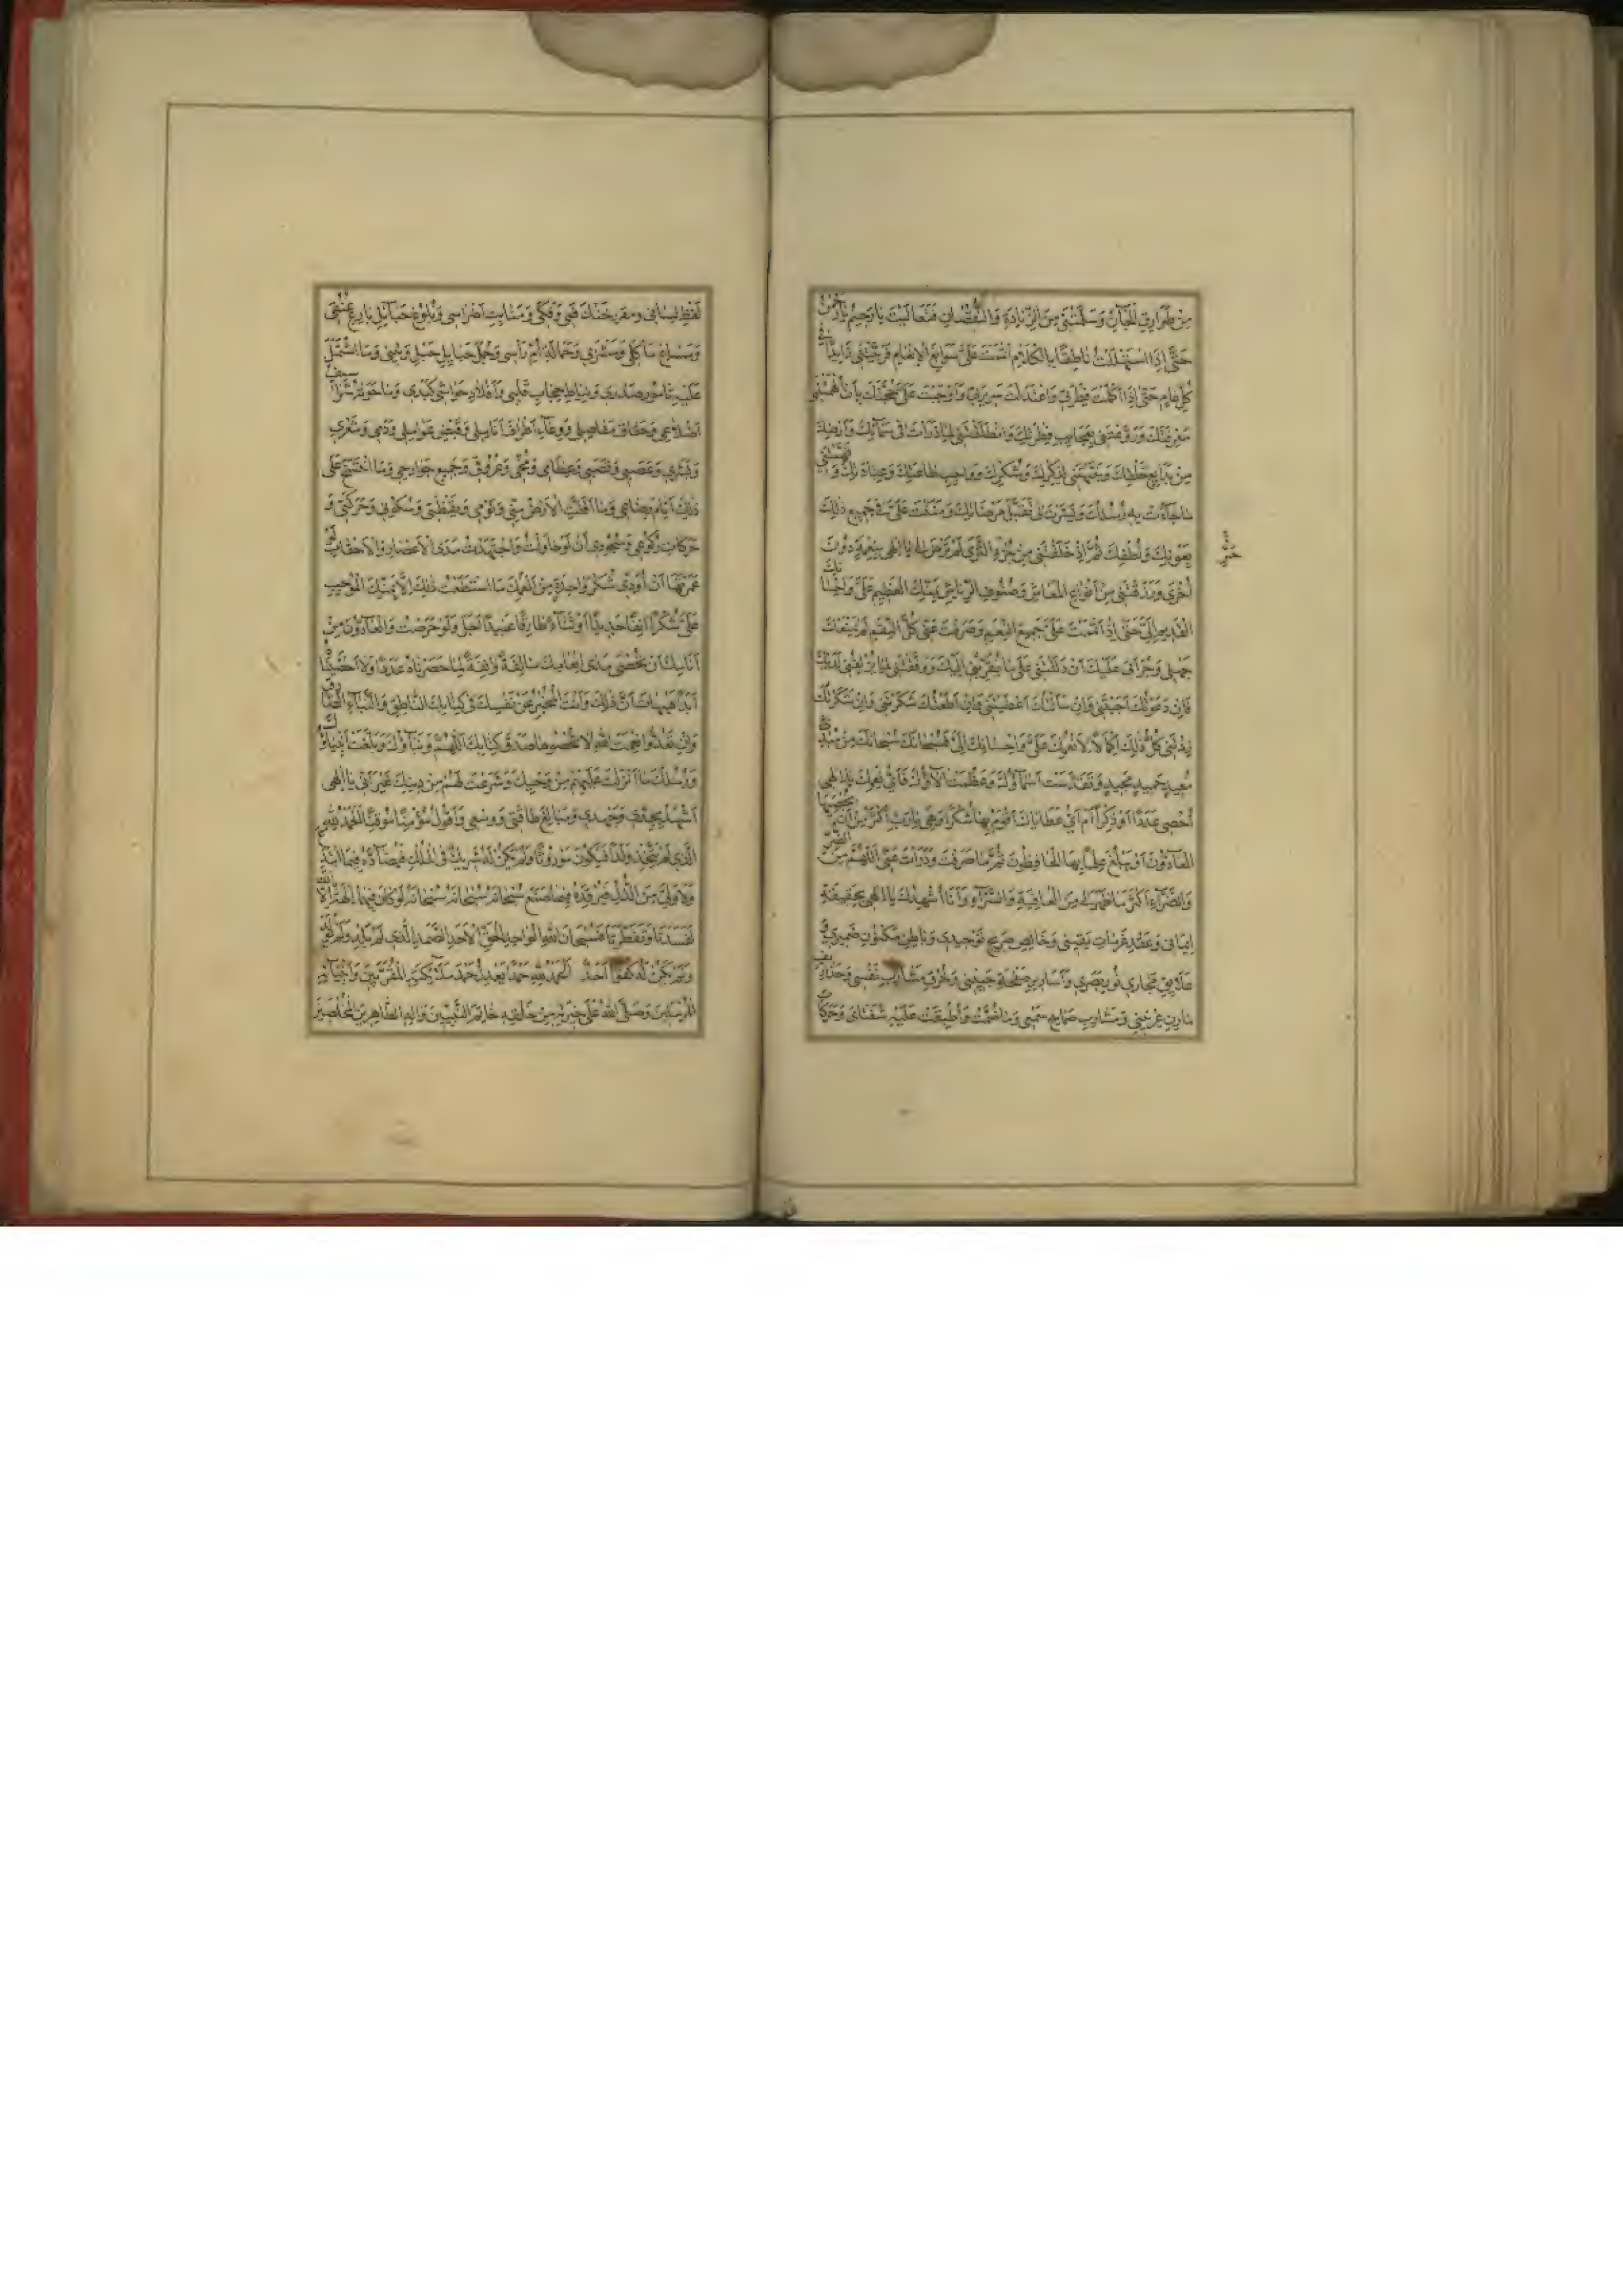 مِنْ طَوَارِقِ الْجَآنِّ وَسَلَّمْتَنِي مِنَ الزِّيَادَةِ وَالنُّقْصَانِ فَتَعَالَيْتَ يَا رَحِيمُ يَا رَحْمٰنُ
حَتَّى إِذَا اسْتَهْلَلْتُ نَاطِقًا بِالْكَلَامِ أَتْمَمْتَ عَلَيَّ سَوَابِغَ الْإِنْعَامِ فَرَبَّيْتَنِي زَايِدًا فِي
كُلِّ عَامٍ حَتَّى إِذَا اكْمَلَتْ فِطْرَتِي وَاعْتَدَلَتْ سَرِيرَتِي أَوْجَبْتَ عَلَيَّ حُجَّتَكَ بِأَنْ أَلْهَمْتَنِي
مَعْرِفَتَكَ وَرَوَّعْتَنِي بِعَجَايِبِ فِطْرَتِكَ وَأَنْطَقْتَنِي لِمَا ذَرَأْتَ فِي سَمَآئِكَ وَأَرْضِكَ
مِنْ بَدَايِعِ خَلْقِكَ وَنَبَّهْتَنِي لِذِكْرِكَ وَشُكْرِكَ وَوَاجِبِ طَاعَتِكَ وَعِبَادَتِكَ وَفَهَّمْتَنِي
مَا جَآءَتْ بِهِ رُسُلُكَ وَيَسَّرْتَ لِي تَقَبُّلَ مَرْضَاتِكَ وَمَنَنْتَ عَلَيَّ فِي جَمِيعِ ذٰلِكَ
بِعَوْنِكَ وَلُطْفِكَ ثُمَّ إِذْ خَلَقْتَنِي مِنْ حُرِّ الثَّرَى لَمْ تَرْضَ لِي يَا إِلٰهِي بِنِعْمَةٍ دُونَ
أُخْرَى وَرَزَقْتَنِي مِنْ أَنْوَاعِ الْمَعَاشِ وَصُنُوفِ الرِّيَاشِ بِمَنِّكَ الْعَظِيمِ عَلَيَّ وَإِحْسَانِكَ
الْقَدِيمِ إِلَيَّ حَتَّى إِذَا أَتْمَمْتَ عَلَيَّ جَمِيعَ النِّعَمِ وَصَرَفْتَ عَنِّي كُلَّ النِّقَمِ لَمْ يَمْنَعْكَ
جَهْلِي وَجُرْأَتِي عَلَيْكَ أَنْ دَلَلْتَنِي عَلَى مَا يُقَرِّبُنِي إِلَيْكَ وَوَفَّقْتَنِي لِمَا يُزْلِفُنِي لَدَيْكَ
فَإِنْ دَعَوْتُكَ أَجَبْتَنِي وَإِنْ سَأَلْتُكَ أَعْطَيْتَنِي وَإِنْ أَطَعْتُكَ شَكَرْتَنِي وَإِنْ شَكَرْتُكَ
زِدْتَنِي كُلُّ ذٰلِكَ إِكْمَالًا لِأَنْعُمِكَ عَلَيَّ وَإِحْسَانِكَ إِلَيَّ فَسُبْحَانَكَ سُبْحَانَكَ مِنْ مُبْدِئٍ
مُعِيدٍ حَمِيدٍ مَجِيدٍ وَتَقَدَّسَتْ أَسْمَآؤُكَ وَعَظُمَتْ آلَآؤُكَ فَأَيَّ نِعَمِكَ يَا إِلٰهِي
أُحْصِي عَدَدًا أَوْ ذِكْرًا أَمْ أَيَّ عَطَايَاكَ أَقُومُ بِهَا شُكْرًا وَهِيَ يَا رَبِّ أَكْثَرُ مِنْ أَنْ يُحْصِيَهَا
الْعَآدُّونَ أَوْ يَبْلُغَ عِلْمًا بِهَا الْحَافِظُونَ ثُمَّ مَا صَرَفْتَ وَدَرَأْتَ عَنِّي اللّٰهُمَّ مِنَ الضُّرِّ
وَالضَّرَّآءِ أَكْثَرُ مَا ظَهَرَ لِي مِنَ الْعَافِيَةِ وَالسَّرَّآءِ وَأَنَا أُشْهِدُكَ يَا إِلٰهِي بِحَقِيقَةِ
إِيمَانِي وَعَقْدِ عَزَمَاتِ يَقِينِي وَخَالِصِ صَرِيحِ تَوْحِيدِي وَبَاطِنِ مَكْنُونِ ضَمِيرِي وَ
عَلَايِقِ مَجَارِي نُورِ بَصَرِي وَأَسَارِيرِ صَفْحَةِ جَبِينِي وَخُرْقِ مَسَارِبِ نَفْسِي وَخَذَارِيفِ
مَارِنِ عِرْنِينِي وَمَسَارِبِ صِمَاخِ سَمْعِي وَمَا ضُمَّتْ وَأَطْبَقَتْ عَلَيْهِ شَفَتَايَ وَحَرَكَاتِ
لَفْظِ لِسَانِي وَمَغْرَزِ حَنَكِ فَمِي وَفَكِّي وَمَنَابِتِ أَضْرَاسِي وَبُلُوغِ حَبَآئِلِ بَارِعِ عُنُقِي
وَمَسَاغِ مَأْكَلِي وَمَشْرَبِي وَحِمَالَةِ أُمِّ رَأْسِي وَجُمَلِ حَمَايِلِ حَبْلِ وَتِينِي وَمَا اشْتَمَلَ
عَلَيْهِ تَامُورُ صَدْرِي وَنِيَاطِ حِجَابِ قَلْبِي وَأَفْلَاذِ حَوَاشِي كَبِدِي وَمَا حَوَتْهُ شَرَاسِيفُ
أَضْلَاعِي وَحِقَاقِ مَفَاصِلِي وَأَطْرَافِ أَنَامِلِي وَقَبْضِ عَوَامِلِي وَدَمِي وَشَعْرِي
وَبَشَرِي وَعَصَبِي وَقَصَبِي وَعِظَامِي وَمُخِّي وَعُرُوقِي وَجَمِيعِ جَوَارِحِي وَمَا انْتَسَجَ عَلَى
ذٰلِكَ أَيَّامَ رَضَاعِي وَمَا أَقَلَّتِ الْأَرْضُ مِنِّي وَنَوْمِي وَيَقَظَتِي وَسُكُونِي وَحَرَكَتِي وَ
حَرَكَاتِ رُكُوعِي وَسُجُودِي أَنْ لَوْ حَاوَلْتُ وَاجْتَهَدْتُ مَدَى الْأَعْصَارِ وَالْأَحْقَابِ لَوْ
عُمِّرْتُهَا أَنْ أُؤَدِّيَ شُكْرَ وَاحِدَةٍ مِنْ أَنْعُمِكَ مَا اسْتَطَعْتُ ذٰلِكَ إِلَّا بِمَنِّكَ الْمُوجِبِ
عَلَيَّ شُكْرًا آنِفًا جَدِيدًا وَثَنَآءً طَارِفًا عَتِيدًا أَجَلْ وَلَوْ حَرَصْتُ وَالْعَآدُّونَ مِنْ
أَنَامِكَ أَنْ نُحْصِيَ مَدَى إِنْعَامِكَ سَالِفَةً وَآنِفَةً لَمَا حَصَرْنَاهُ عَدَدًا وَلَا أَحْصَيْنَاهُ
أَبَدًا هَيْهَاتَ أَنَّى ذٰلِكَ وَأَنْتَ الْمُخْبِرُ عَنْ نَفْسِكَ فِي كِتَابِكَ النَّاطِقِ وَالنَّبَإِ الصَّادِقِ
وَإِنْ تَعُدُّوا نِعْمَتَ اللّٰهِ لَا تُحْصُوهَا صَدَقَ كِتَابُكَ اللّٰهُمَّ وَنَبَآؤُكَ وَبَلَّغَتْ أَنْبِيَآؤُكَ
وَرُسُلُكَ مَا أَنْزَلْتَ عَلَيْهِمْ مِنْ وَحْيِكَ وَشَرَعْتَ لَهُمْ مِنْ دِينِكَ غَيْرَ أَنِّي يَا إِلٰهِي
أَشْهَدُ بِجِدِّي وَجُهْدِي وَمَبَالِغِ طَاقَتِي وَوُسْعِي وَأَقُولُ مُؤْمِنًا مُوقِنًا الْحَمْدُ لِلّٰهِ
الَّذِي لَمْ يَتَّخِذْ وَلَدًا فَيَكُونَ مَوْرُوثًا وَلَمْ يَكُنْ لَهُ شَرِيكٌ فِي الْمُلْكِ فَيُضَآدَّهُ فِيمَا ابْتَدَعَ
وَلَا وَلِيٌّ مِنَ الذُّلِّ فَيُرْفِدَهُ فِيمَا صَنَعَ سُبْحَانَهُ سُبْحَانَهُ سُبْحَانَهُ لَوْ كَانَ فِيهِمَا آلِهَةٌ إِلَّا اللّٰهُ
لَفَسَدَتَا وَتَفَطَّرَتَا فَسُبْحَانَ اللّٰهِ الْوَاحِدِ الْحَقِّ الْأَحَدِ الصَّمَدِ الَّذِي لَمْ يَلِدْ وَلَمْ يُولَدْ
وَلَمْ يَكُنْ لَهُ كُفُوًا أَحَدٌ الْحَمْدُ لِلّٰهِ حَمْدًا يَعْدِلُ حَمْدَ مَلَآئِكَتِهِ الْمُقَرَّبِينَ وَأَنْبِيَآئِهِ
الْمُرْسَلِينَ وَصَلَّى اللّٰهُ عَلَى خِيَرَتِهِ مِنْ خَلْقِهِ خَاتَمِ النَّبِيِّينَ وَآلِهِ الطَّاهِرِينَ الْمُخْلَصِينَ